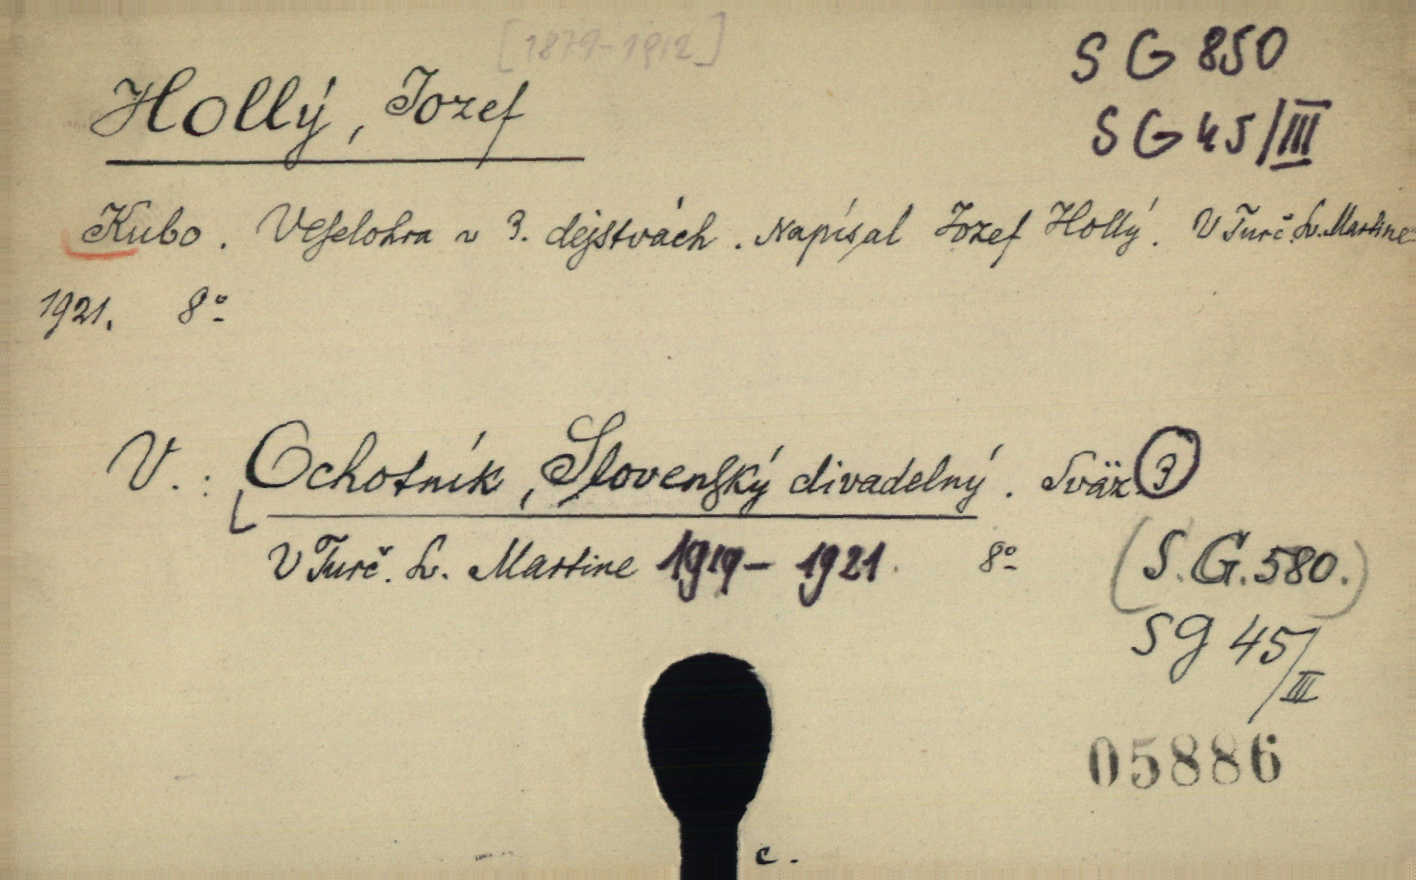 [1879-1912]
SG 850
Hollý, Jozef
SG 45/III
Kubo. Veselohra v 3. dejstvách. Napísal Jozef Hollý. V Turč. Sv. Martine
1921. 8°
V.: Ochotník, Slovenský divadelný. Sväz. 3
V Turč. Sv. Martine 1919-1921. 8°
(S.G.580.)
SG 45/III
05886
c.